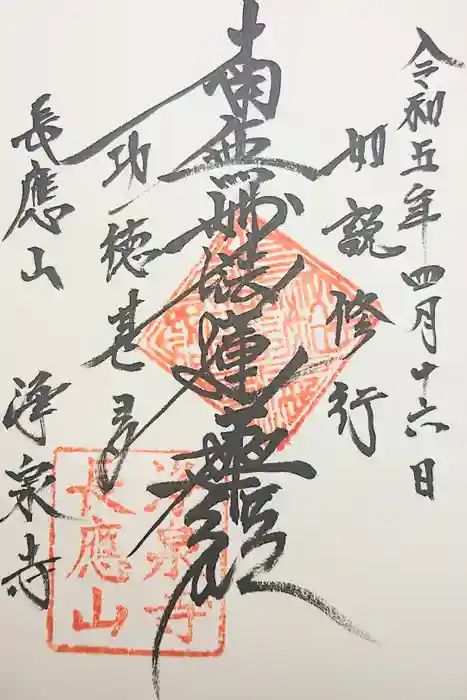 令和五年四月十六日
如説修行
南無妙法蓮華經
功徳甚多
長應山
浄泉寺
浄泉寺
長應山